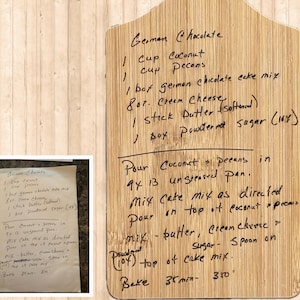 German Chocolate
1 cup coconut
1 cup pecans
1 box german chocolate cake mix
8 oz. cream cheese
1 stick butter (softened)
1 box powdered sugar (10X)
Pour coconut + pecans in
9 x 13 ungreased pan.
Mix cake mix as directed
Pour on top of coconut + pecans
mix - butter, cream cheese +
Powdered sugar - spoon on
(10X) top of cake mix.
Bake 35 min - 350°